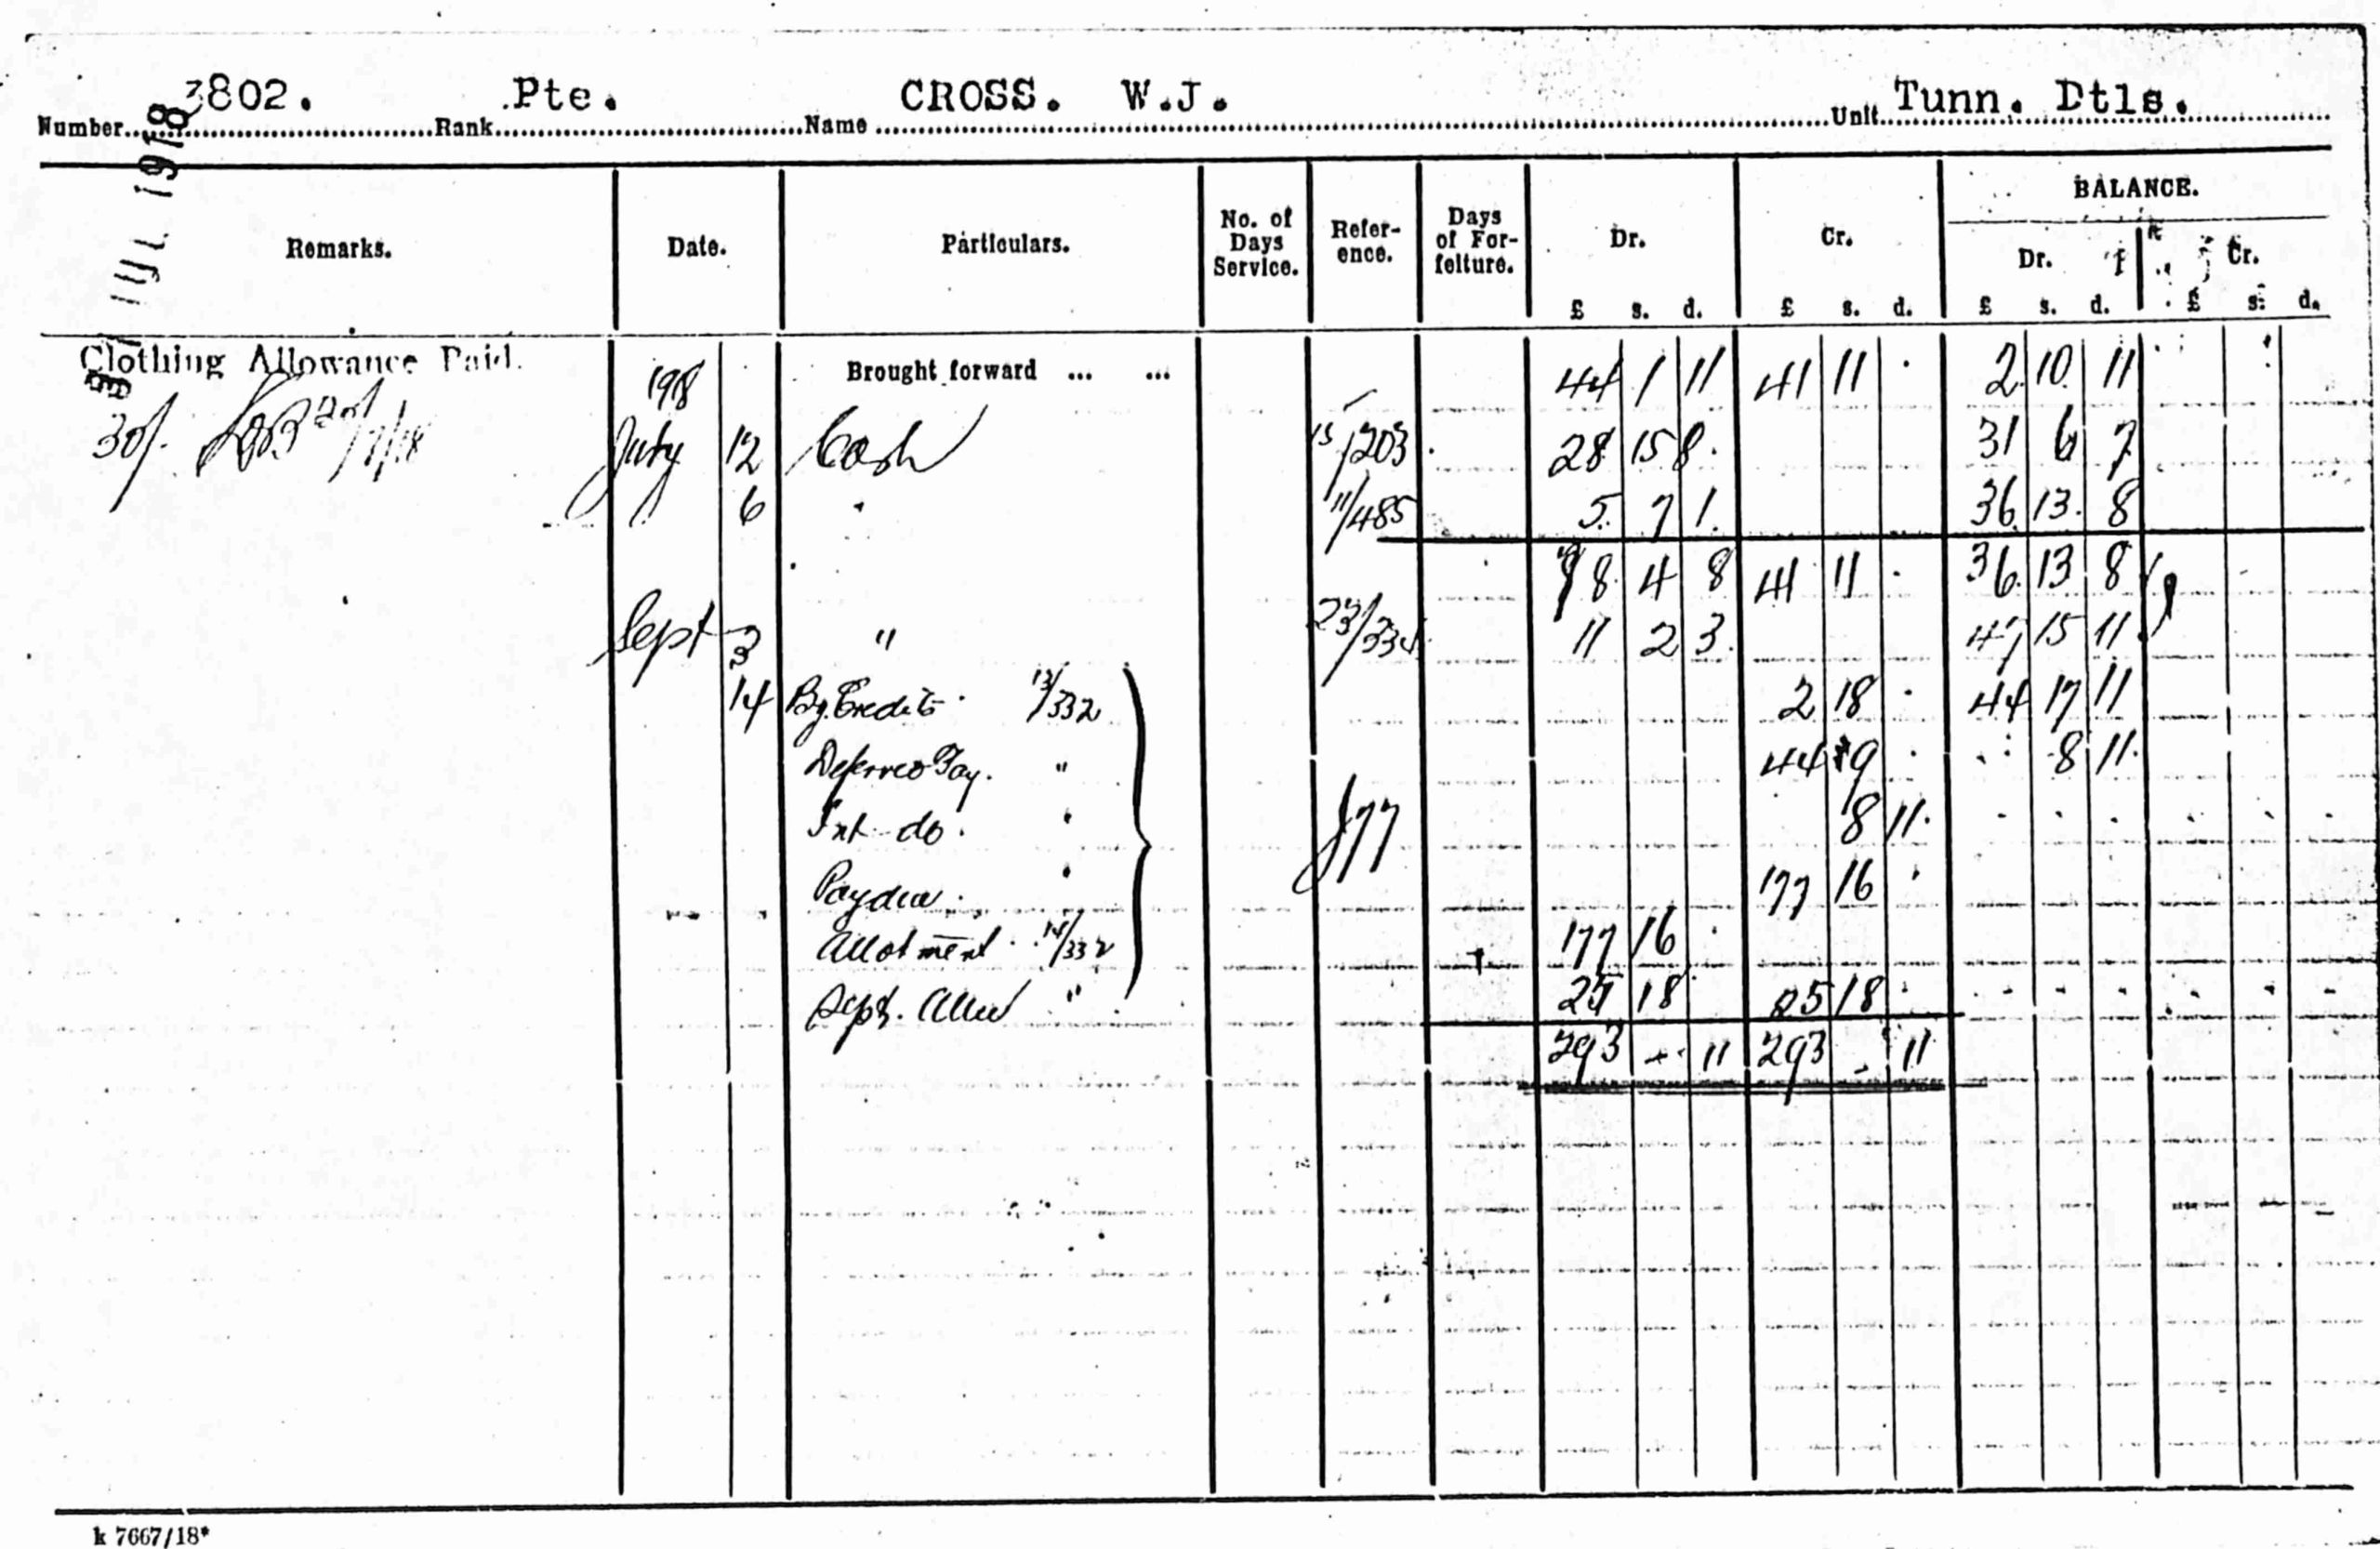 3802. Pte. CROSS. W.J. Tunn. Dtls.
Number Rank Name Unit
31 JUL 1918
BALANCE.
Remarks. Date. Particulars. No. of Days Service. Refer-ence. Days of For-feiture. Dr. Cr. Dr. Cr.
£ s. d. £ s. d. £ s. d. £ s. d.
Clothing Allowance Paid. 1918 Brought forward ... ... 44 1 11 41 11 . 2 10 11
30/- July 12 Cash 15/203 28 15 8 31 6 7
6 " 11/485 5 7 1 36 13 8
78 4 8 41 11 . 36 13 8
Sept 3 " 11 2 3 47 15 11
14 By Credits 13/332 2 18 . 44 17 11
Deferred Pay. " 44 9 . 8 11
Int do. " 8 11 . . .
Pay due. " 177 16 .
Allotment 14/332 177 16 .
Sept. " 25 18 25 18 . . . .
293 - 11 293 - 11
k 7667/18*